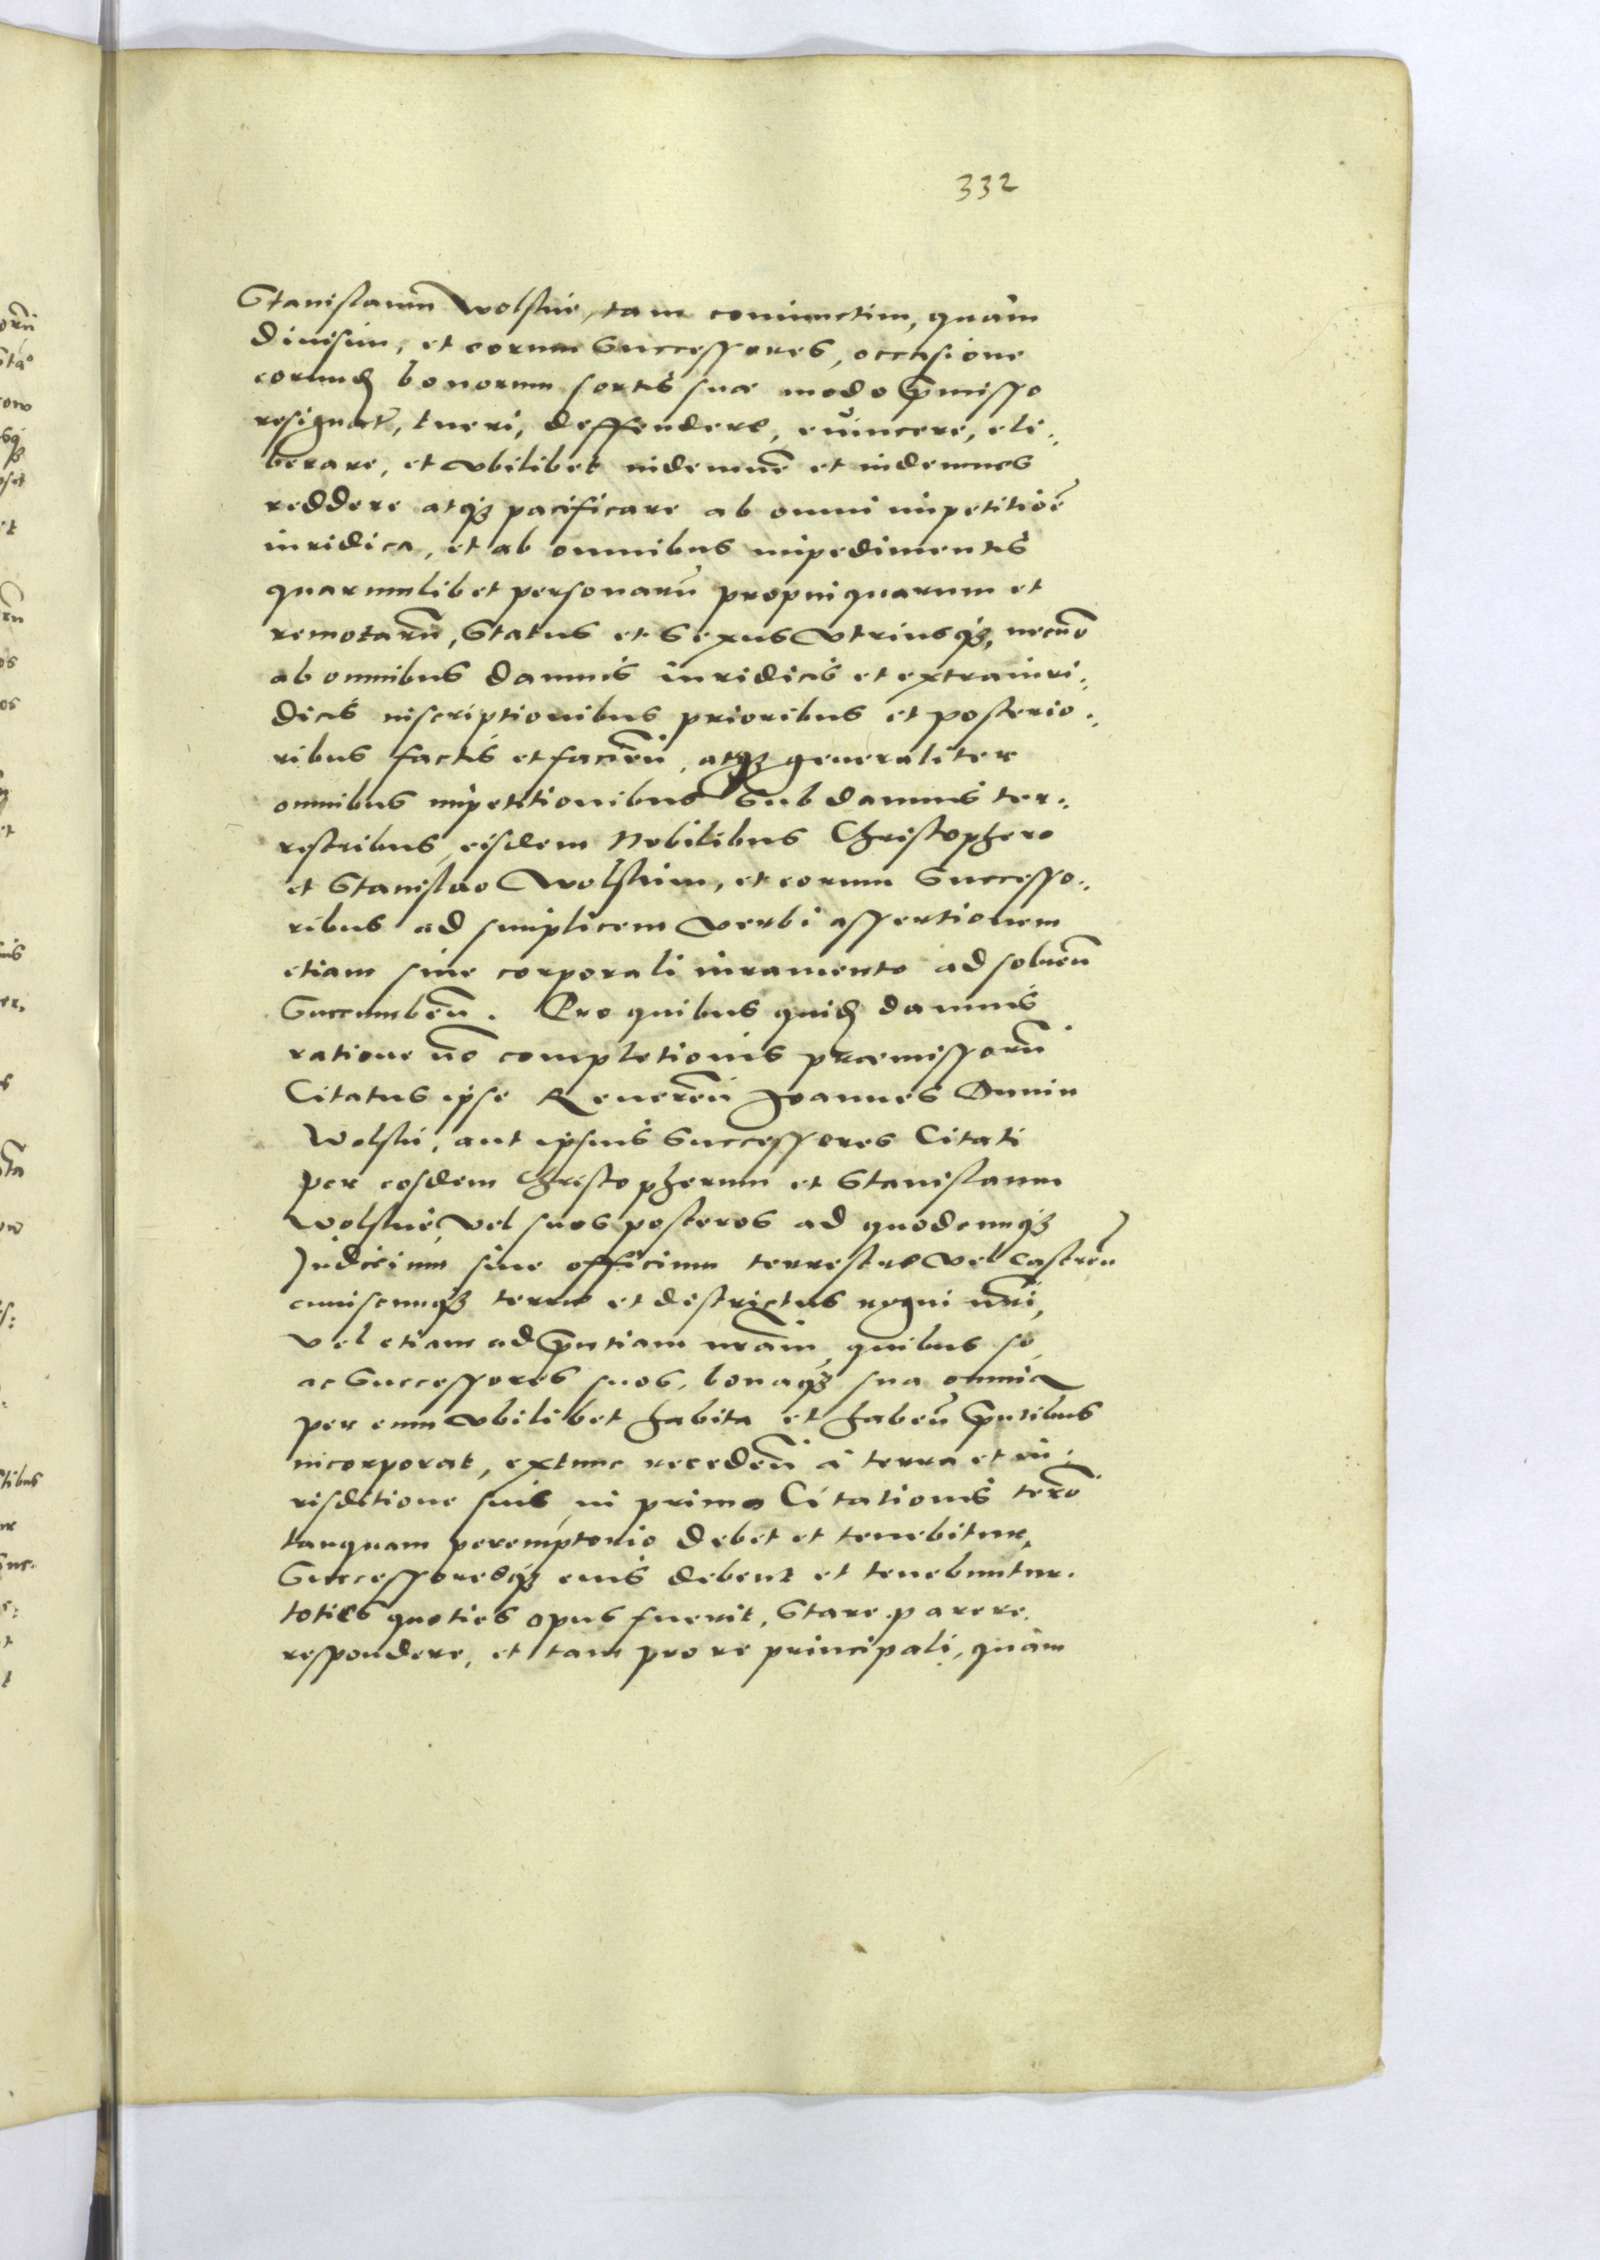 332
Stanislaum Wolskie, tam coniunctim, quam
diuisim, et eorum Successores, occasione
eorumd bonorum sortis suæ modo pmisso
resignat, tueri, deffendere, euincere, eli:
berare, et vbilibet indemnē et indemnes
reddere atq pacificare ab omni impetitiōe
iuridica, et ab omnibus impedimentis
quarumlibet personarū propinquarum et
remotarū, Status et Sexus vtriusq, necnō
ab omnibus damnis iuridicis et extraiuri:
dicis inscriptionibus prioribus et posterio:
ribus factis et faciēn, atq generaliter
omnibus impetitionibus Sub damnis ter:
restribus, eisdem Nobilibus Christophero
et Stanislao Wolskim, et eorum Successo:
ribus ad simplicem verbi assertionem
etiam sine corporali iuramento ad soluēn
Succumbēn. Pro quibus quid damnis
ratione nō completionis præmissorū
Citatus ipse Reuerēn Joannes Dunin
Wolski, aut ipsius Successores Citati
per eosdem Christopherum et Stanislaum
Wolskie, vel suos posteros ad quodcunq
Judicium siue officium terrestre vel castreñ
cuiuscunq terræ et districtus regni nri,
vel etiam ad pntiam nram, quibus se,
ac Successores suos, bonaq sua omnia
per eum vbilibet habita et habeñ pntibus
incorporat, extunc recedeñ à terra et iu:
risdctione suis, in primo Citationis terō
tanquam peremptorio debet et tenebitur,
Successoresq eius debent et tenebuntur.
toties quoties opus fuerit, Stare parere
respondere, et tam pro re principali, quàm